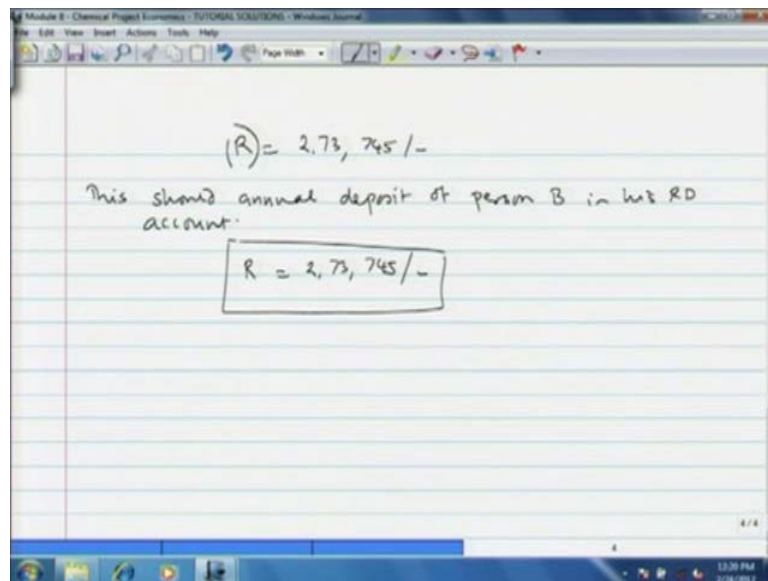 Module 8 - Chemical Project Economics - TUTORIAL SOLUTIONS - Windows Journal
File Edit View Insert Actions Tools Help
Page Width
(R) = 2,73, 745 /-
This should annual deposit of person B in his RD
account.
R = 2,73, 745/-
4/4
4
12:20 PM